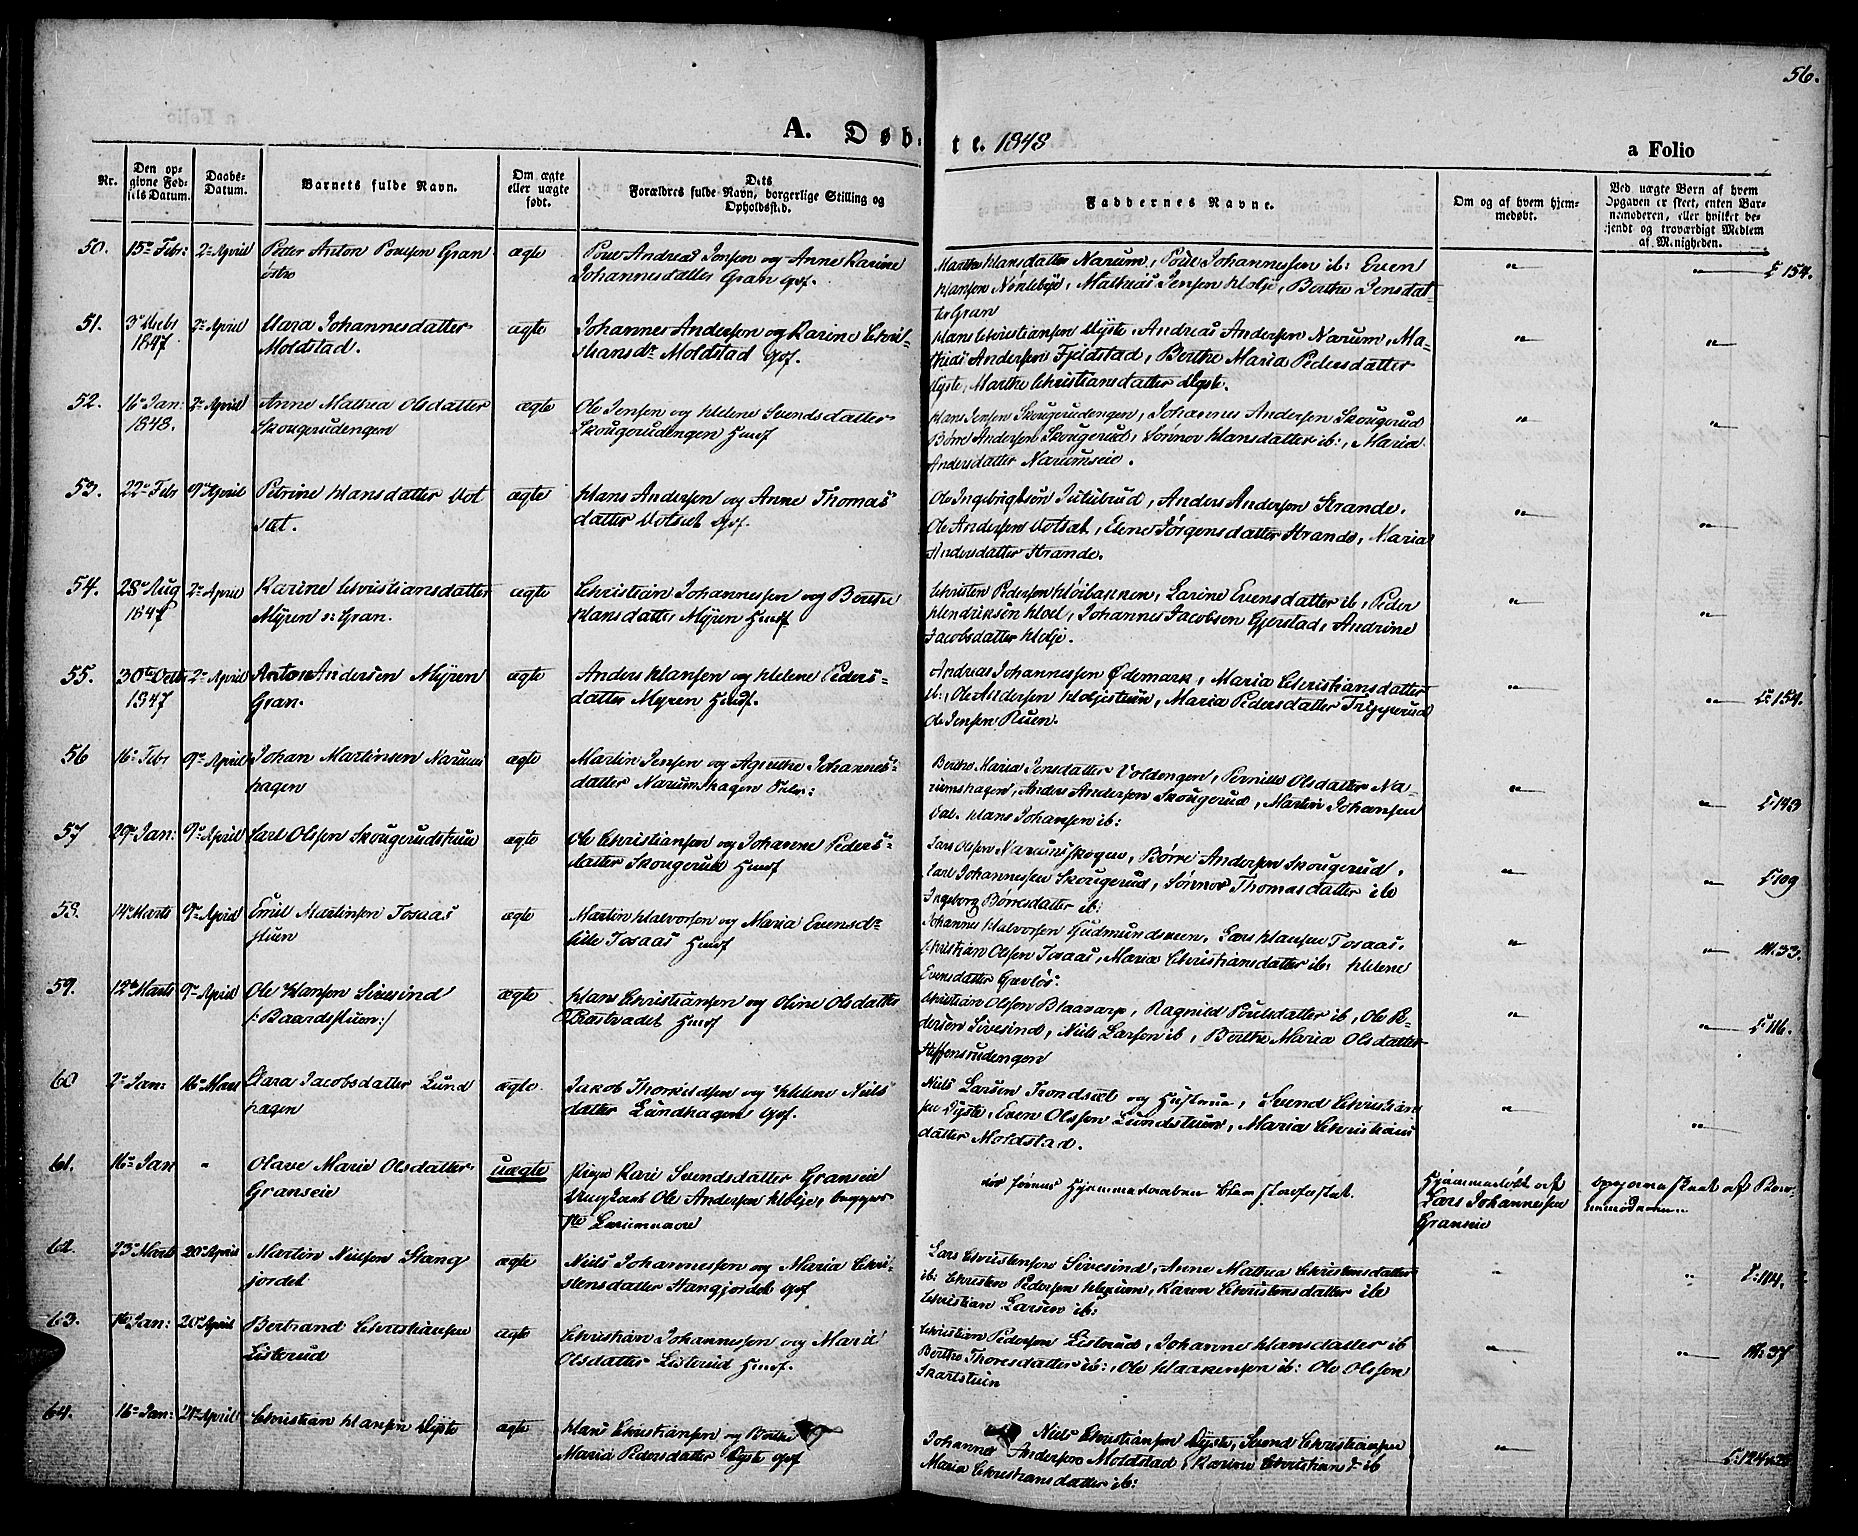 56.
A. Døb-
te. 1848
a Folio
Nr.
Den op-
givne Fød-
sels Datum.
Daabs-
Datum.
Barnets fulde Navn.
Om ægte
eller uægte
født.
Dets
Forældres fulde Navn, borgerlige Stilling og
Opholdssted.
Faddernes Navne.
Om og af hvem hjem-
medøbt.
Ved uægte Born af hvem
Opgaven er skeet, enten Bar-
nemoderen, eller hvilket be-
kjendt og troværdigt Medlem
af Menigheden.
50. 15de Febr: 2den April
Peter Anton Poulsen Gran
østre
ægte
Poul Andreas Jensen og Anne Karine
Johannesdatter Gran Gsf.
Marthe Hansdatter Narum, Poul Johannessen ib: Even
Hansen Nørleböe, Mathias Jensen Holje, Berthe Jensdat-
ter Gran
" " C 154.
51. 3de Decbr 2den April
1847
Clara Johannesdatter
Moldstad.
ægte
Johannes Andersen og Karine Chri-
stiansdr Moldstad Gsf.
Hans Christiansen Dyste, Andreas Andersen Narum, Ma-
thias Andersen Fjeldstad, Berthe Maria Pedersdatter
Dyste, Marthe Christiansdatter Dyste.
" "
52. 16de Jan: 2den April
1848.
Anne Mathea Olsdatter
Skougerudengen
ægte
Ole Jensen og Helene Svendsdatter
Skougerudengen Huusf
Hans Jensen Skougerudengen, Johannes Andersen Skougerud
Børre Andersen Skougerud, Sönnov Hansdatter ib:, Maria
Andersdatter Narumseie.
" "
53. 22de Febr 9de April
Petrine Hansdatter Vol
sæt.
ægte
Hans Andersen og Anne Thomas
datter Volset Gsf.
Ole Ingebrigtsen Julibrud, Anders Andersen Strande,
Ole Andersen Volsæt, Elene Jörgensdatter Strande, Maria
Andersdatter Strande.
" "
54. 28de Aug 2den April
1847
Karine Christiansdatter
Myren v: Gran.
ægte
Christian Johannessen og Berthe
Hansdatter Myren Huusf
Christen Pedersen Höibakken, Larine Evensdatter ib, Peder
Hendriksen Hoel, Johannes Jacobsen Gjerstad, Andrine
Jacobsdatter Holje.
" "
55. 30te Octbr 2den April
1847
Anton Andersen Myren
Gran.
ægte
Anders Hansen og Helene Peders-
datter Myren Huusf.
Andreas Johannessen Ødemark, Maria Christiansdatter
ib:, Ole Andersen Holjestuen, Maria Pedersdatter Tripperud
Ole Jensen Ruen.
" " C: 154.
56 16de Febr 9de April
Johan Martinsen Narums
hagen
ægte
Martin Jensen og Agnethe Johannes-
datter Narumshagen
Berthe Maria Jensdatter Voldengen, Pernille Olsdatter Na-
rumshagen, Anders Andersen Skougerud, Martin Johansen
Dal. Hans Johansen ib:
" " C 143
57 29de Jan: 9de April
Carl Olssen Skougerudstuen
ægte
Ole Christiansen og Johanne Peders-
datter Skougerud Huusf
Lars Olssen Narumsskogen, Børre Andersen Skougerud,
Carl Johannessen Skougerud, Sönnov Thomasdatter ib
Ingeborg Børresdatter ib:
" " C 109
58. 14de Marts 9de April
Emil Martinsen Tosaas
stuen
ægte
Martin Halvorsen og Maria Evensd-
Tosaas Huusf
Johannes Halvorsen Gudmundsveen, Lars Hansen Tosaas,
Christian Olsen Tosaas, Maria Christiansdatter ib: Helene
Evensdatter Gaarløs.
" " M. 33.
59. 12te Marts 9de April
Ole Hansen Sivesind
/: Baardstuen :/
ægte
Hans Christiansen og Oline Olsdatter
Brastvadet Huusf
Christian Olsen Blaavarp, Ragnild Poulsdatter ib, Ole Pe-
dersen Sivesind, Niels Larsen ib, Berthe Maria Olsdatter
Steffensrudengen
" " C: 116.
60 2den Jan: 16de
Clara Jacobsdatter Lund
hagen
ægte
Jakob Thorkildsen og Helene Niels
datter Lundhagen Gsf.
Niels Larsen Trondsæt og Hustrue, Svend Christian
sen Dyste, Even Olssen Lundstuen, Maria Christians
datter Moldstad.
" "
61. 16de Jan "
Olave Marie Olsdatter
Granseie
uægte
Pige Kari Svendsdatter Granseie
Ungkarl Ole Andersen Holje, begges
1ste Leiermaal
dør førend Hjemmedaaben blev stadfæstet.
Hjemmedøbt af
Lars Johannessen
Granseie
Opgaven skeet af Bar-
nemoderen
62. 23de Marts 20de April
Martin Nielsen Stang
jordet
ægte
Niels Johannessen og Maria Chri-
stensdatter Stangjordet Gsf
Lars Christensen Sivesind, Anne Mathea Christensdatter
ib: Christen Pedersen Hexum, Karen Christensdatter ib
Christian Larsen ib:
" " C: 114.
63. Jan: 20de April
Bertrand Christiansen
Listerud
ægte
Christian Johannessen og Marie
Olsdatter Listerud Huusf.
Christian Pedersen Listerud, Johanne Hansdatter ib
Berthe Thoresdatter ib:, Ole Haakensen ib: Ole Olssen
Skartstuen
" " M: 37
64. 16de Jan: 21de April
Christian Hansen Dyste
ægte
Hans Christiansen og Berthe
Maria Pedersdatter Dyste Gsf
Niels Christiansen Dyste, Svend Christiansen
Johannes Andersen Moldstad, Karine Christiansd ib
Maria Christiansdatter ib:
"